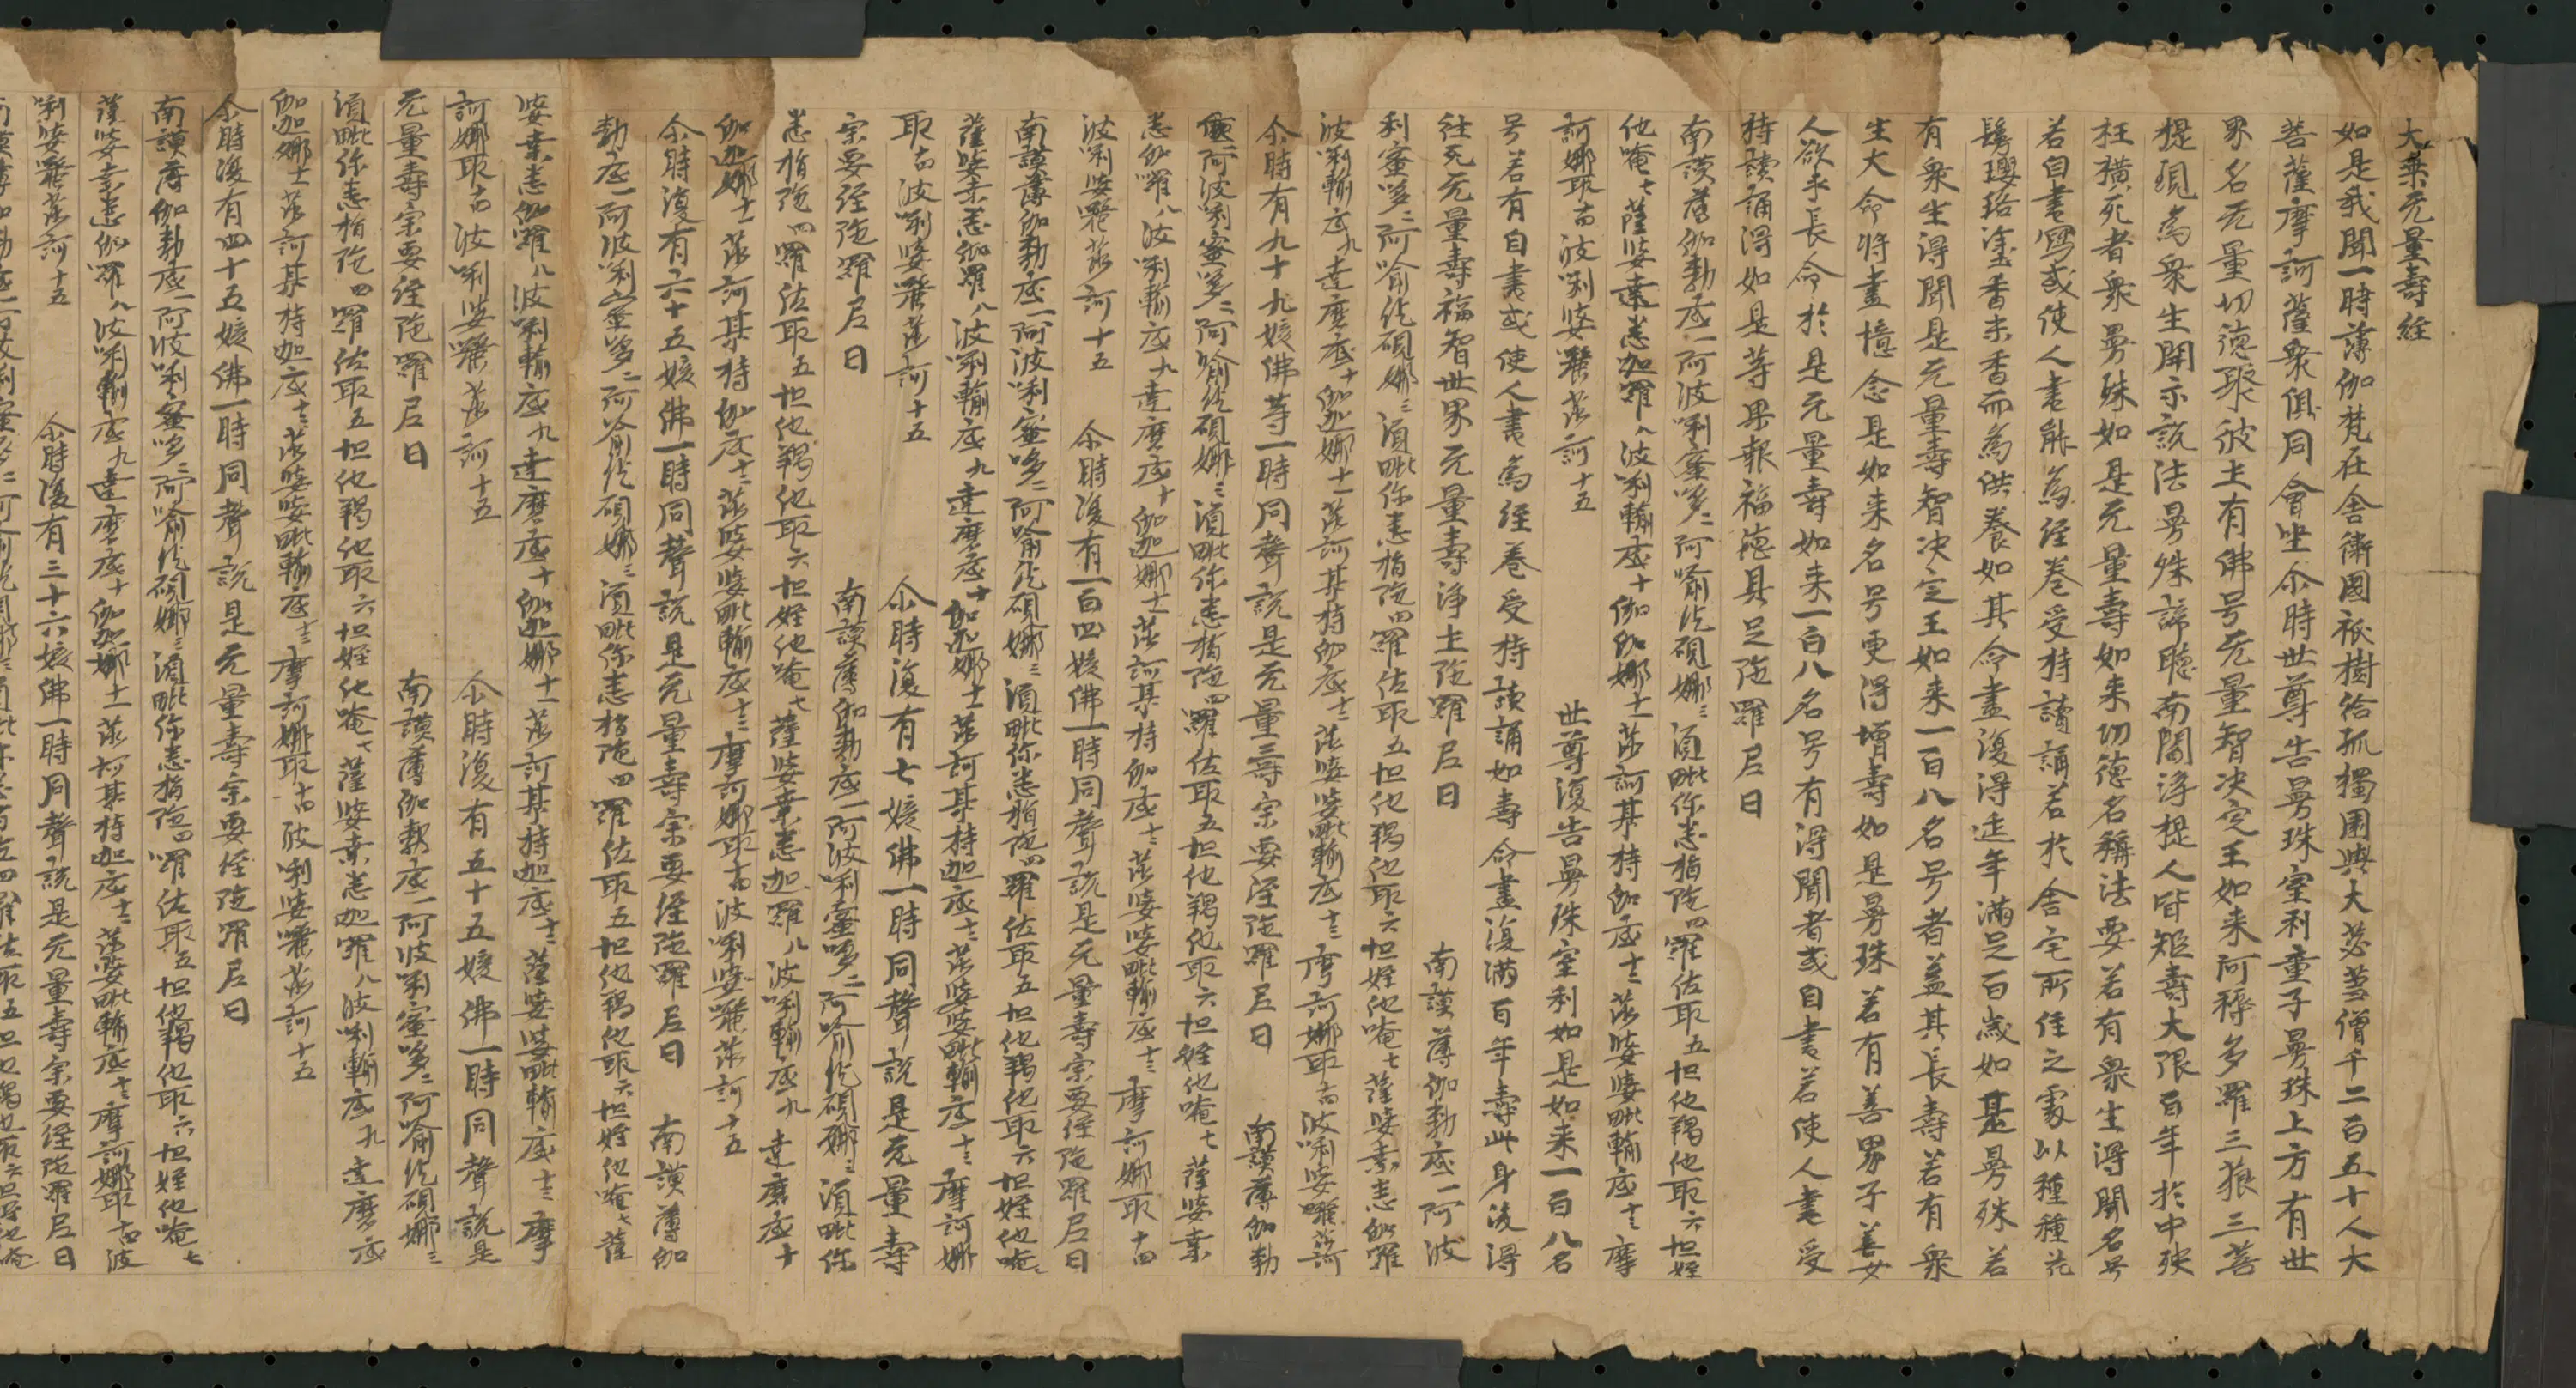 大乘无量壽經
如是我聞一時薄伽梵在舍衛國祇樹給孤獨園與大苾芻僧千二百五十人大
菩薩摩訶薩衆俱同會坐尒時世尊告曼殊室利童子曼殊上方有世
界名无量功德聚彼土有佛号无量智決定王如来阿耨多羅三狼三菩
提現為衆生開示說法曼殊諦聽南閻浮提人皆短壽大限百年於中殀
枉橫死者衆曼殊如是无量壽如来功德名稱法要若有衆生得聞名号
若自書寫或使人書能為經卷受持讀誦若於舍宅所住之處以種種花
鬘瓔珞塗香末香而為供養如其命盡復得延年滿足百歲如是曼殊若
有衆生得聞是无量壽智決定王如来一百八名号者益其長壽若有衆
生大命將盡憶念是如来名号更得增壽如是曼殊若有善男子善女
人欲求長命於是无量壽如来一百八名号有得聞者或自書若使人書受
持讀誦得如是等果報福德具足陁羅尼曰
南謨薄伽勃底一阿波唎蜜哆二阿喻紇硯娜三須毗你悉指陁四羅佐耶五怛他羯他耶六怛姪
他唵七薩婆桒悉伽羅八波唎輸底十伽迦娜十一莎訶某持伽底十二莎婆婆毗輸底十三摩
訶娜耶十四波唎婆𠼝莎訶十五　世尊復告曼殊室利如是如来一百八名
号若有自書或使人書為經卷受持讀誦如壽命盡復滿百年壽此身後得
往死无量壽福智世界无量壽淨土陁羅尼曰　南謨薄伽勃底一阿波
利蜜哆二阿喻紇硯娜三須毗你悉指陁四羅佐耶五怛他羯他耶六怛姪他唵七薩婆桒悉伽羅
波唎輸底九達磨底十伽迦娜十一莎訶某持伽底十二莎婆婆毗輸底十三摩訶娜耶十四波唎婆𠼝莎訶
尒時有九十九姟佛等一時同聲說是无量壽宗要經陁羅尼曰　南謨薄伽勃
底一阿波唎蜜哆二阿喻紇硯娜三須毗你悉指陁四羅佐耶五怛他羯他耶六怛姪他唵七薩婆桒
悉伽羅八波唎輸底九達磨底十伽迦娜十一莎訶某持伽底十二莎婆婆毗輸底十三摩訶娜耶十四
波唎婆𠼝莎訶十五　尒時復有一百四姟佛一時同聲說是无量壽宗要經陁羅尼曰
南謨薄伽勃底一阿波唎蜜哆二阿喻紇硯娜三須毗你悉指陁四羅佐耶五怛他羯他耶六怛姪他唵七
薩婆桒悉伽羅八波唎輸底九達磨底十伽迦娜十一莎訶某持伽底十二莎婆婆毗輸底十三摩訶娜
耶十四波唎婆𠼝莎訶十五　尒時復有七姟佛一時同聲說是无量壽
宗要經陁羅尼曰　南謨薄伽勃底一阿波唎蜜哆二阿喻紇硯娜三須毗你
悉指陁四羅佐耶五怛他羯他耶六怛姪他唵七薩婆桒悉伽羅八波唎輸底九達磨底十
伽迦娜十一莎訶某持伽底十二莎婆婆毗輸底十三摩訶娜耶十四波唎婆𠼝莎訶十五
尒時復有六十五姟佛一時同聲說是无量壽宗要經陁羅尼曰　南謨薄伽
勃底一阿波唎蜜哆二阿喻紇硯娜三須毗你悉指陁四羅佐耶五怛他羯他耶六怛姪他唵七薩
婆桒悉伽羅八波唎輸底九達磨底十伽迦娜十一莎訶某持伽底十二薩婆婆毗輸底十三摩
訶娜耶十四波唎婆𠼝莎訶十五　尒時復有五十五姟佛一時同聲說是
无量壽宗要經陁羅尼曰　南謨薄伽勃底一阿波唎蜜哆二阿喻紇硯娜三
須毗你悉指陁四羅佐耶五怛他羯他耶六怛姪他唵七薩婆桒悉伽羅八波唎輸底九達磨底
伽迦娜十一莎訶某持伽底十二莎婆婆毗輸底十三摩訶娜耶十四波唎婆𠼝莎訶十五
尒時復有四十五姟佛一時同聲說是无量壽宗要經陁羅尼曰
南謨薄伽勃底一阿波唎蜜哆二阿喻紇硯娜三須毗你悉指陁四羅佐耶五怛他羯他耶六怛姪他唵七
薩婆桒悉伽羅八波唎輸底九達磨底十伽迦娜十一莎訶某持伽底十二莎婆婆毗輸底十三摩訶娜耶十四波
唎婆𠼝莎訶十五　尒時復有三十六姟佛一時同聲說是无量壽宗要經陁羅尼曰